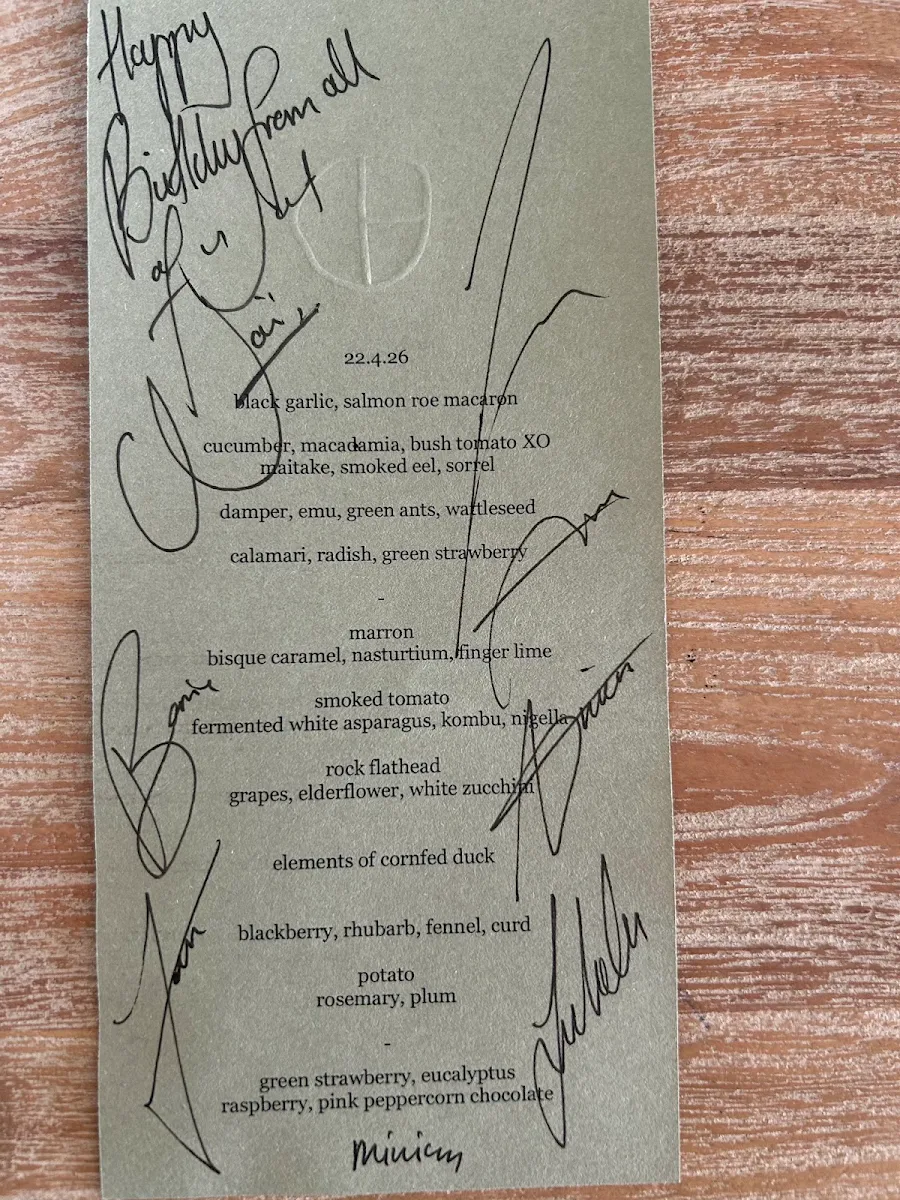 Happy
Birthday from all
of us at
22.4.26
black garlic, salmon roe macaron
cucumber, macadamia, bush tomato XO
maitake, smoked eel, sorrel
damper, emu, green ants, wattleseed
calamari, radish, green strawberry
-
marron
bisque caramel, nasturtium, finger lime
smoked tomato
fermented white asparagus, kombu, nigella
rock flathead
grapes, elderflower, white zucchini
elements of cornfed duck
blackberry, rhubarb, fennel, curd
potato
rosemary, plum
-
green strawberry, eucalyptus
raspberry, pink peppercorn chocolate